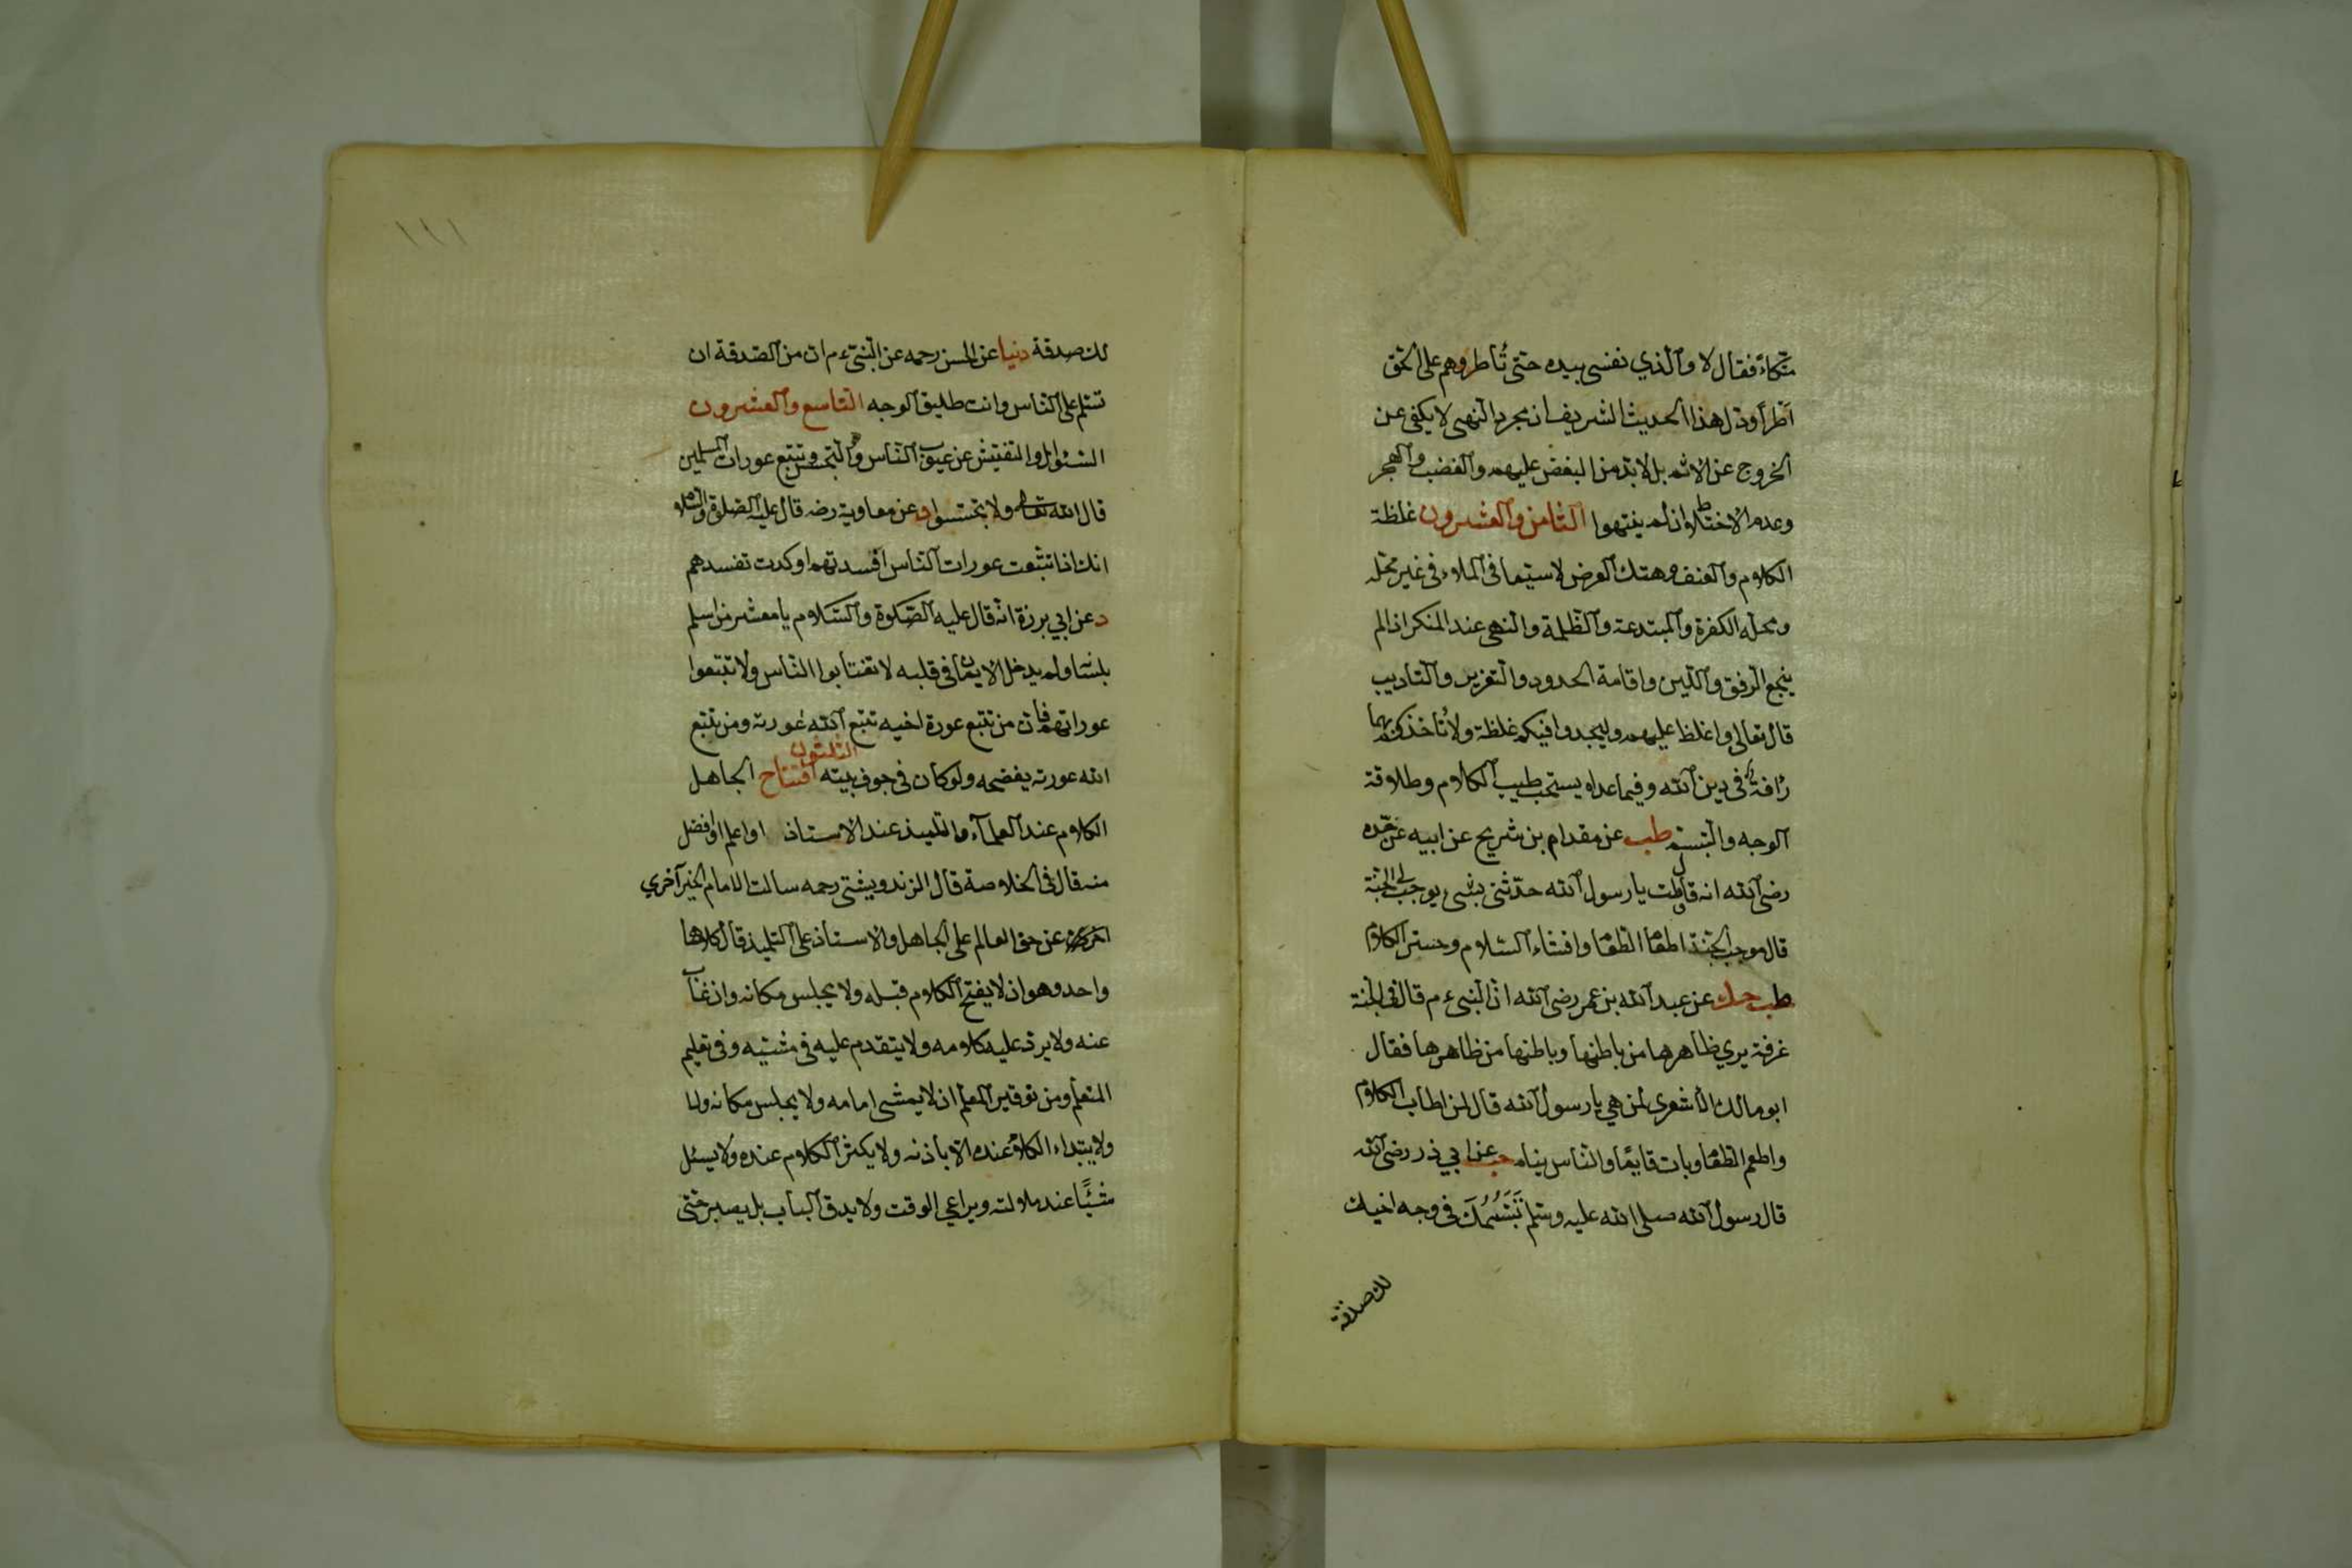 متكاء فقال لا والذي نفسي بيده حتى تأطروهم على الحق
أطرا ودل هذا الحديث الشريف ان مجرد النهى لا يكفى عن
الخروج عن الاثم بل لا بد من البغض عليهم والغضب والهجر
وعدم الاختلاط وان لم ينتهوا الثامن والعشرون غلظة
الكلام والعنف وهتك العرض لا سيما فى الملاء فى غير محله
ومحله الكفرة والمبتدعة والظلمة والنهى عند المنكر اذا لم
ينجع الرفق واللين واقامة الحدود والتعزير والتاديب
قال تعالى واغلظ عليهم وليجدوا فيكم غلظة ولا تأخذكم بهما
رأفة فى دين الله وفيما عداه يستحب طيب الكلام وطلاقة
الوجه والتبسم طب عن مقدام بن شريح عن ابيه عن جده
رضى الله انه قال قلت يا رسول الله حدثنى بشىء يوجب لى الجنة
قال موجب الجنة اطعام الطعام وافشاء السلام وحسن الكلام
طب حك عن عبد الله بن عمر رضى الله ان النبىء م قال فى الجنة
غرفة يرى ظاهرها من باطنها وباطنها من ظاهرها فقال
ابو مالك الأشعرى لمن هي يا رسول الله قال لمن اطاب الكلام
واطعم الطعام وبات قايمًا والناس ينام حب عن ابي ذر رضى الله
قال رسول الله صلى الله عليه وسلم تَبَسُّمُكَ فى وجه اخيك
لك صدقة
١١١
لك صدقة دنيا عن الحسن رحمه عن النبىء م ان من الصدقة ان
تسلم على الناس وانت طليق الوجه التاسع والعشرون
السؤال والتفتيش عن عيوب الناس والتجسس وتتبع عورات المسلمين
قال الله تعالى ولا تجسسوا د عن معاوية رضه قال عليه الصلوة والسلام
انك اذا تتبعت عورات الناس افسدتهم او كدت تفسدهم
د عن ابي برزة انه قال عليه الصلوة والسلام يا معشر من اسلم
بلسانه ولم يدخل الايمان فى قلبه لا تغتابوا الناس ولا تتبعوا
عوراتهم فان من تتبع عورة اخيه تتبع الله عورته ومن تتبع
الله عورته يفضحه ولو كان فى جوف بيته الثلثون افتتاح الجاهل
الكلام عند العلماء والتلميذ عند الاستاذ او اعلم او افضل
منه قال فى الخلاصة قال الزندويشتى رحمه سالت الامام الخيرآخري
عن حق العالم على الجاهل والاستاذ على التلميذ قال كلاهما
واحد وهو ان لا يفتح الكلام قبله ولا يجلس مكانه وان غاب
عنه ولا يرد عليه كلامه ولا يتقدم عليه فى مشيه وفى تعليم
المتعلم ومن توقير المعلم ان لا يمشى امامه ولا يجلس مكانه ولا
ولا يبتداء الكلام عنده الا بأذنه ولا يكثر الكلام عنده ولا يسئل
شيئًا عند ملالته ويراعي الوقت ولا يدق الباب بل يصبر حتى